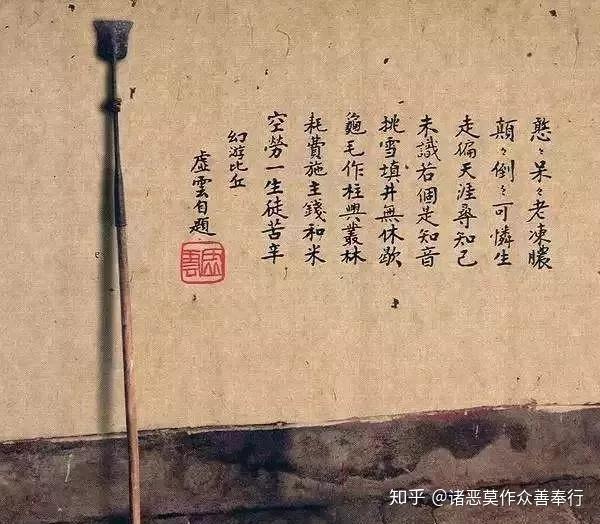 憨々呆々老凍膿
顛々倒々可憐生
走徧天涯尋知己
未識若個是知音
挑雪填井無休歇
龜毛作柱興叢林
耗費施主錢和米
空勞一生徒苦辛
幻游比丘
虛雲自題
虛雲
知乎 @诸恶莫作众善奉行